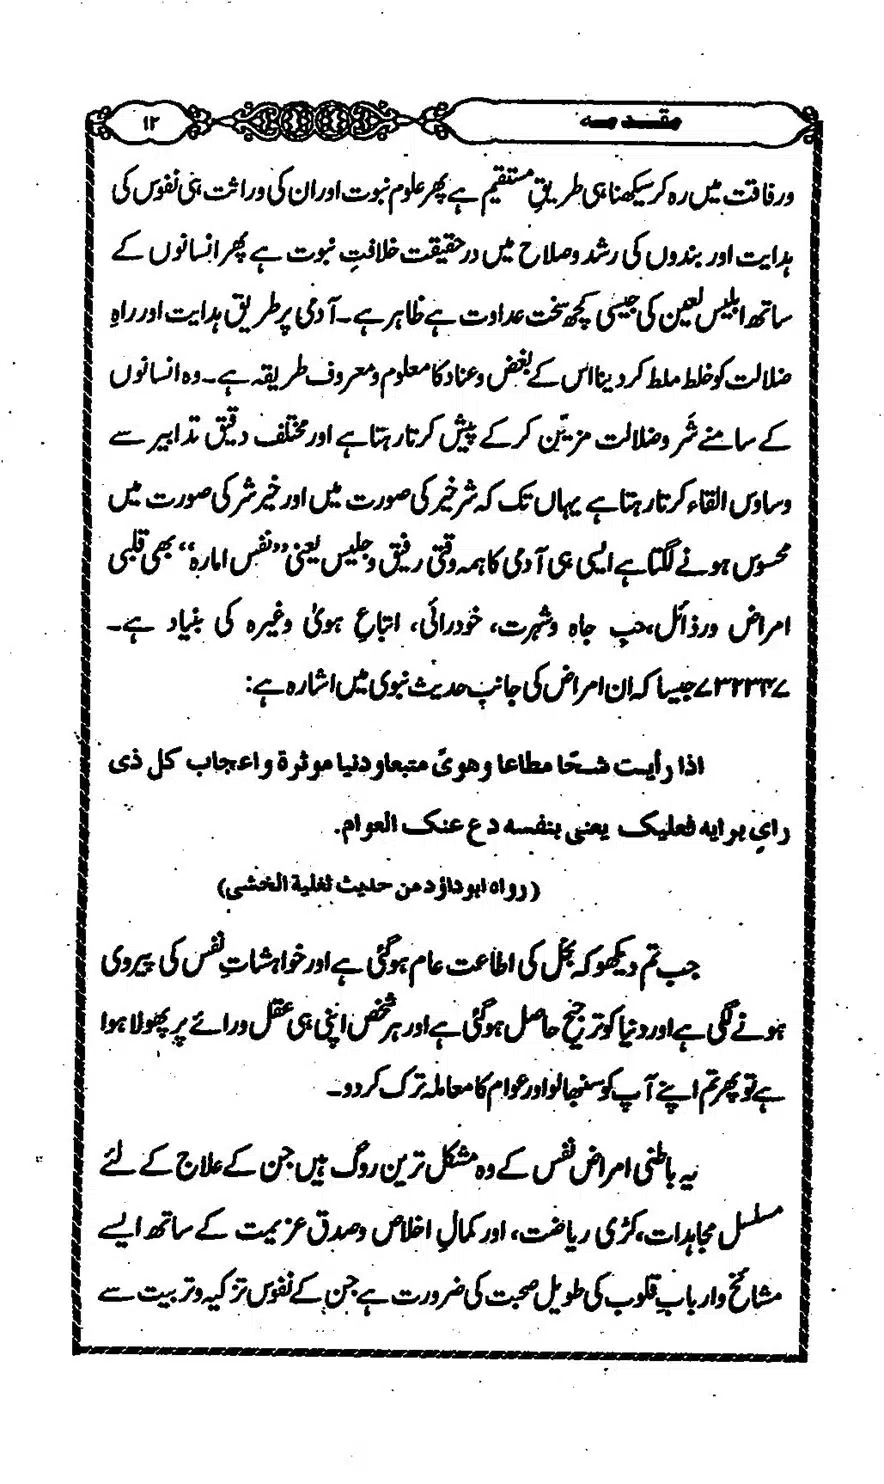 مقدمہ
۱۲
ورفاقت میں رہ کر سیکھنا ہی طریقِ مستقیم ہے پھر علوم نبوت اور ان کی وراثت ہی نفوس کی
ہدایت اور بندوں کی رشد وصلاح میں درحقیقت خلافتِ نبوت ہے پھر انسانوں کے
ساتھ ابلیس لعین کی جیسی کچھ سخت عداوت ہے ظاہر ہے۔ آدمی پر طریق ہدایت اور راہِ
ضلالت کو خلط ملط کر دینا اس کے بغض وعناد کا معلوم ومعروف طریقہ ہے۔ وہ انسانوں
کے سامنے شَر وضلالت مزیّن کر کے پیش کرتا رہتا ہے اور مختلف دقیق تدابیر سے
وساوس القاء کرتا رہتا ہے یہاں تک کہ شر خیر کی صورت میں اور خیر شر کی صورت میں
محسوس ہونے لگتا ہے ایسی ہی آدمی کا ہمہ وقتی رفیق وجلیس یعنی ”نفس امارہ“ بھی قلبی
امراض ورذائل، حبِ جاہ وشہرت، خودرائی، اتباعِ ہویٰ وغیرہ کی بنیاد ہے۔
۷۳۲۳۴۷ جیسا کہ ان امراض کی جانب حدیث نبوی میں اشارہ ہے:
اذا رأیت شحّا مطاعا وھویً متبعا ودنیا موثرة واعجاب کل ذی
رایٍ برایه فعلیک یعنی بنفسه دع عنک العوام.
(رواه ابوداؤد من حدیث ثغلبة الخشی)
جب تم دیکھو کہ بخل کی اطاعت عام ہوگئی ہے اور خواہشاتِ نفس کی پیروی
ہونے لگی ہے اور دنیا کو ترجیح حاصل ہوگئی ہے اور ہر شخص اپنی ہی عقل ورائے پر پھولا ہوا
ہے تو پھر تم اپنے آپ کو سنبھالو اور عوام کا معاملہ ترک کر دو۔
یہ باطنی امراض نفس کے وہ مشکل ترین روگ ہیں جن کے علاج کے لئے
مسلسل مجاہدات، کڑی ریاضت، اور کمالِ اخلاص وصدق عزیمت کے ساتھ ایسے
مشائخ وار بابِ قلوب کی طویل صحبت کی ضرورت ہے جن کے نفوس تزکیہ وتربیت سے